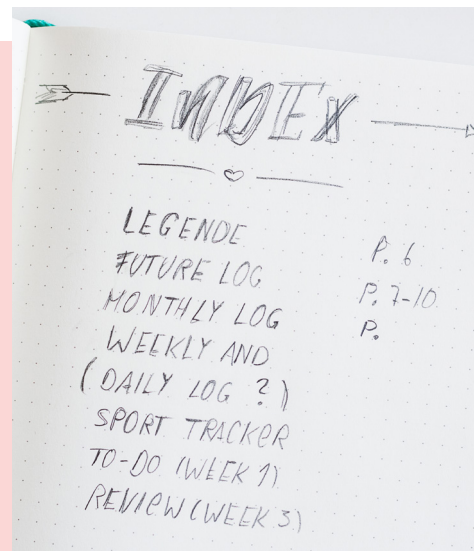 INDEX
LEGENDE P. 6
FUTURE LOG P. 7-10
MONTHLY LOG P.
WEEKLY AND
(DAILY LOG ?)
SPORT TRACKER
TO-DO (WEEK 1)
REVIEW (WEEK 3)